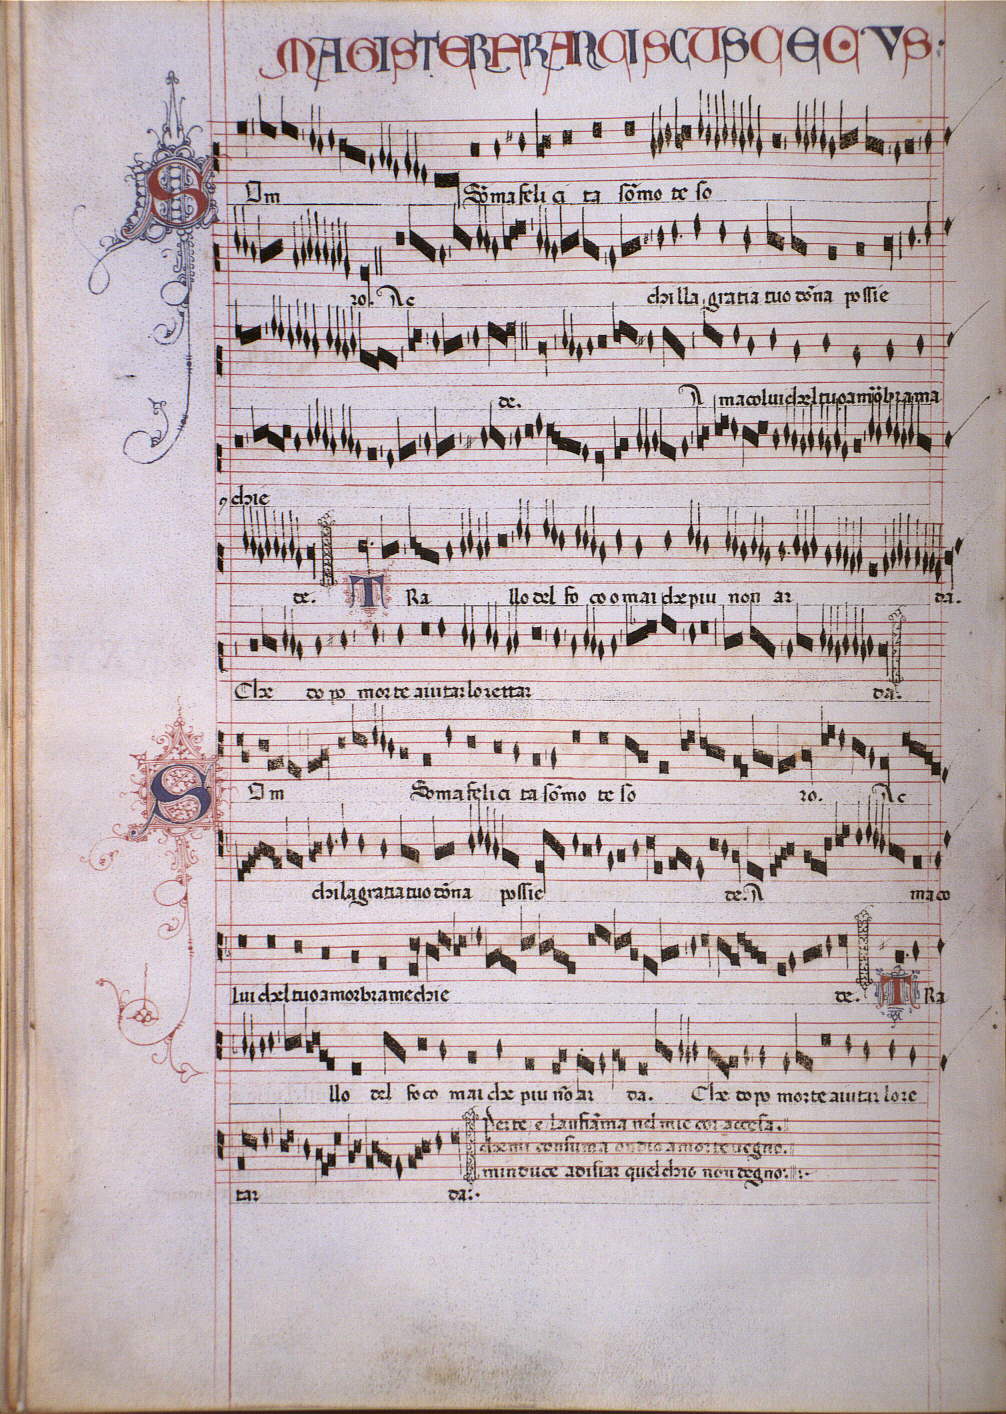 MAGISTER FRANCISCUS CECVS:
S Om Sõma feli ci ta sõmo te so
ro. Ac chilla gratia tuo tõna possie
de. A macoluichel tuo amõr brama
chie
de. TRa llo del fo co o mai che piu non ar da.
Che to po morte aiutar lo rettar da.
S Om Soma felici ta sõmo te so ro. Ac
chi la gratia tuo tõna possie de. A maco
lui chel tuo amor brame chie de. TRa
llo del foco mai che piu nõ ar da. Che to po morte aiutar lo re
Per te e lanfiãma nel mie cor accesa.
che mi consuma ondio a morte uegno.
minduce adisiar quel chio non tegno.
tar da.